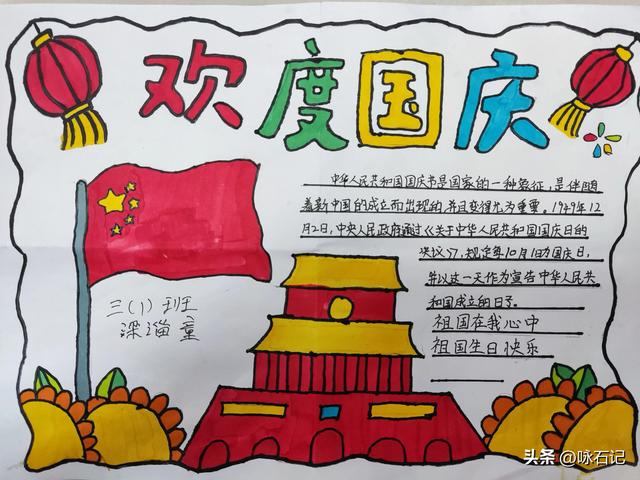 欢度国庆
中华人民共和国国庆节是国家的一种象征，是伴随
着新中国的成立而出现的，并且变得尤为重要。1949年12
月2日，中央人民政府通过《关于中华人民共和国国庆日的
决议》，规定每10月1日为国庆日，
并以这一天作为宣告中华人民共
和国成立的日子。
祖国在我心中
祖国生日快乐
三(1)班
深湽童
头条 @咏石记